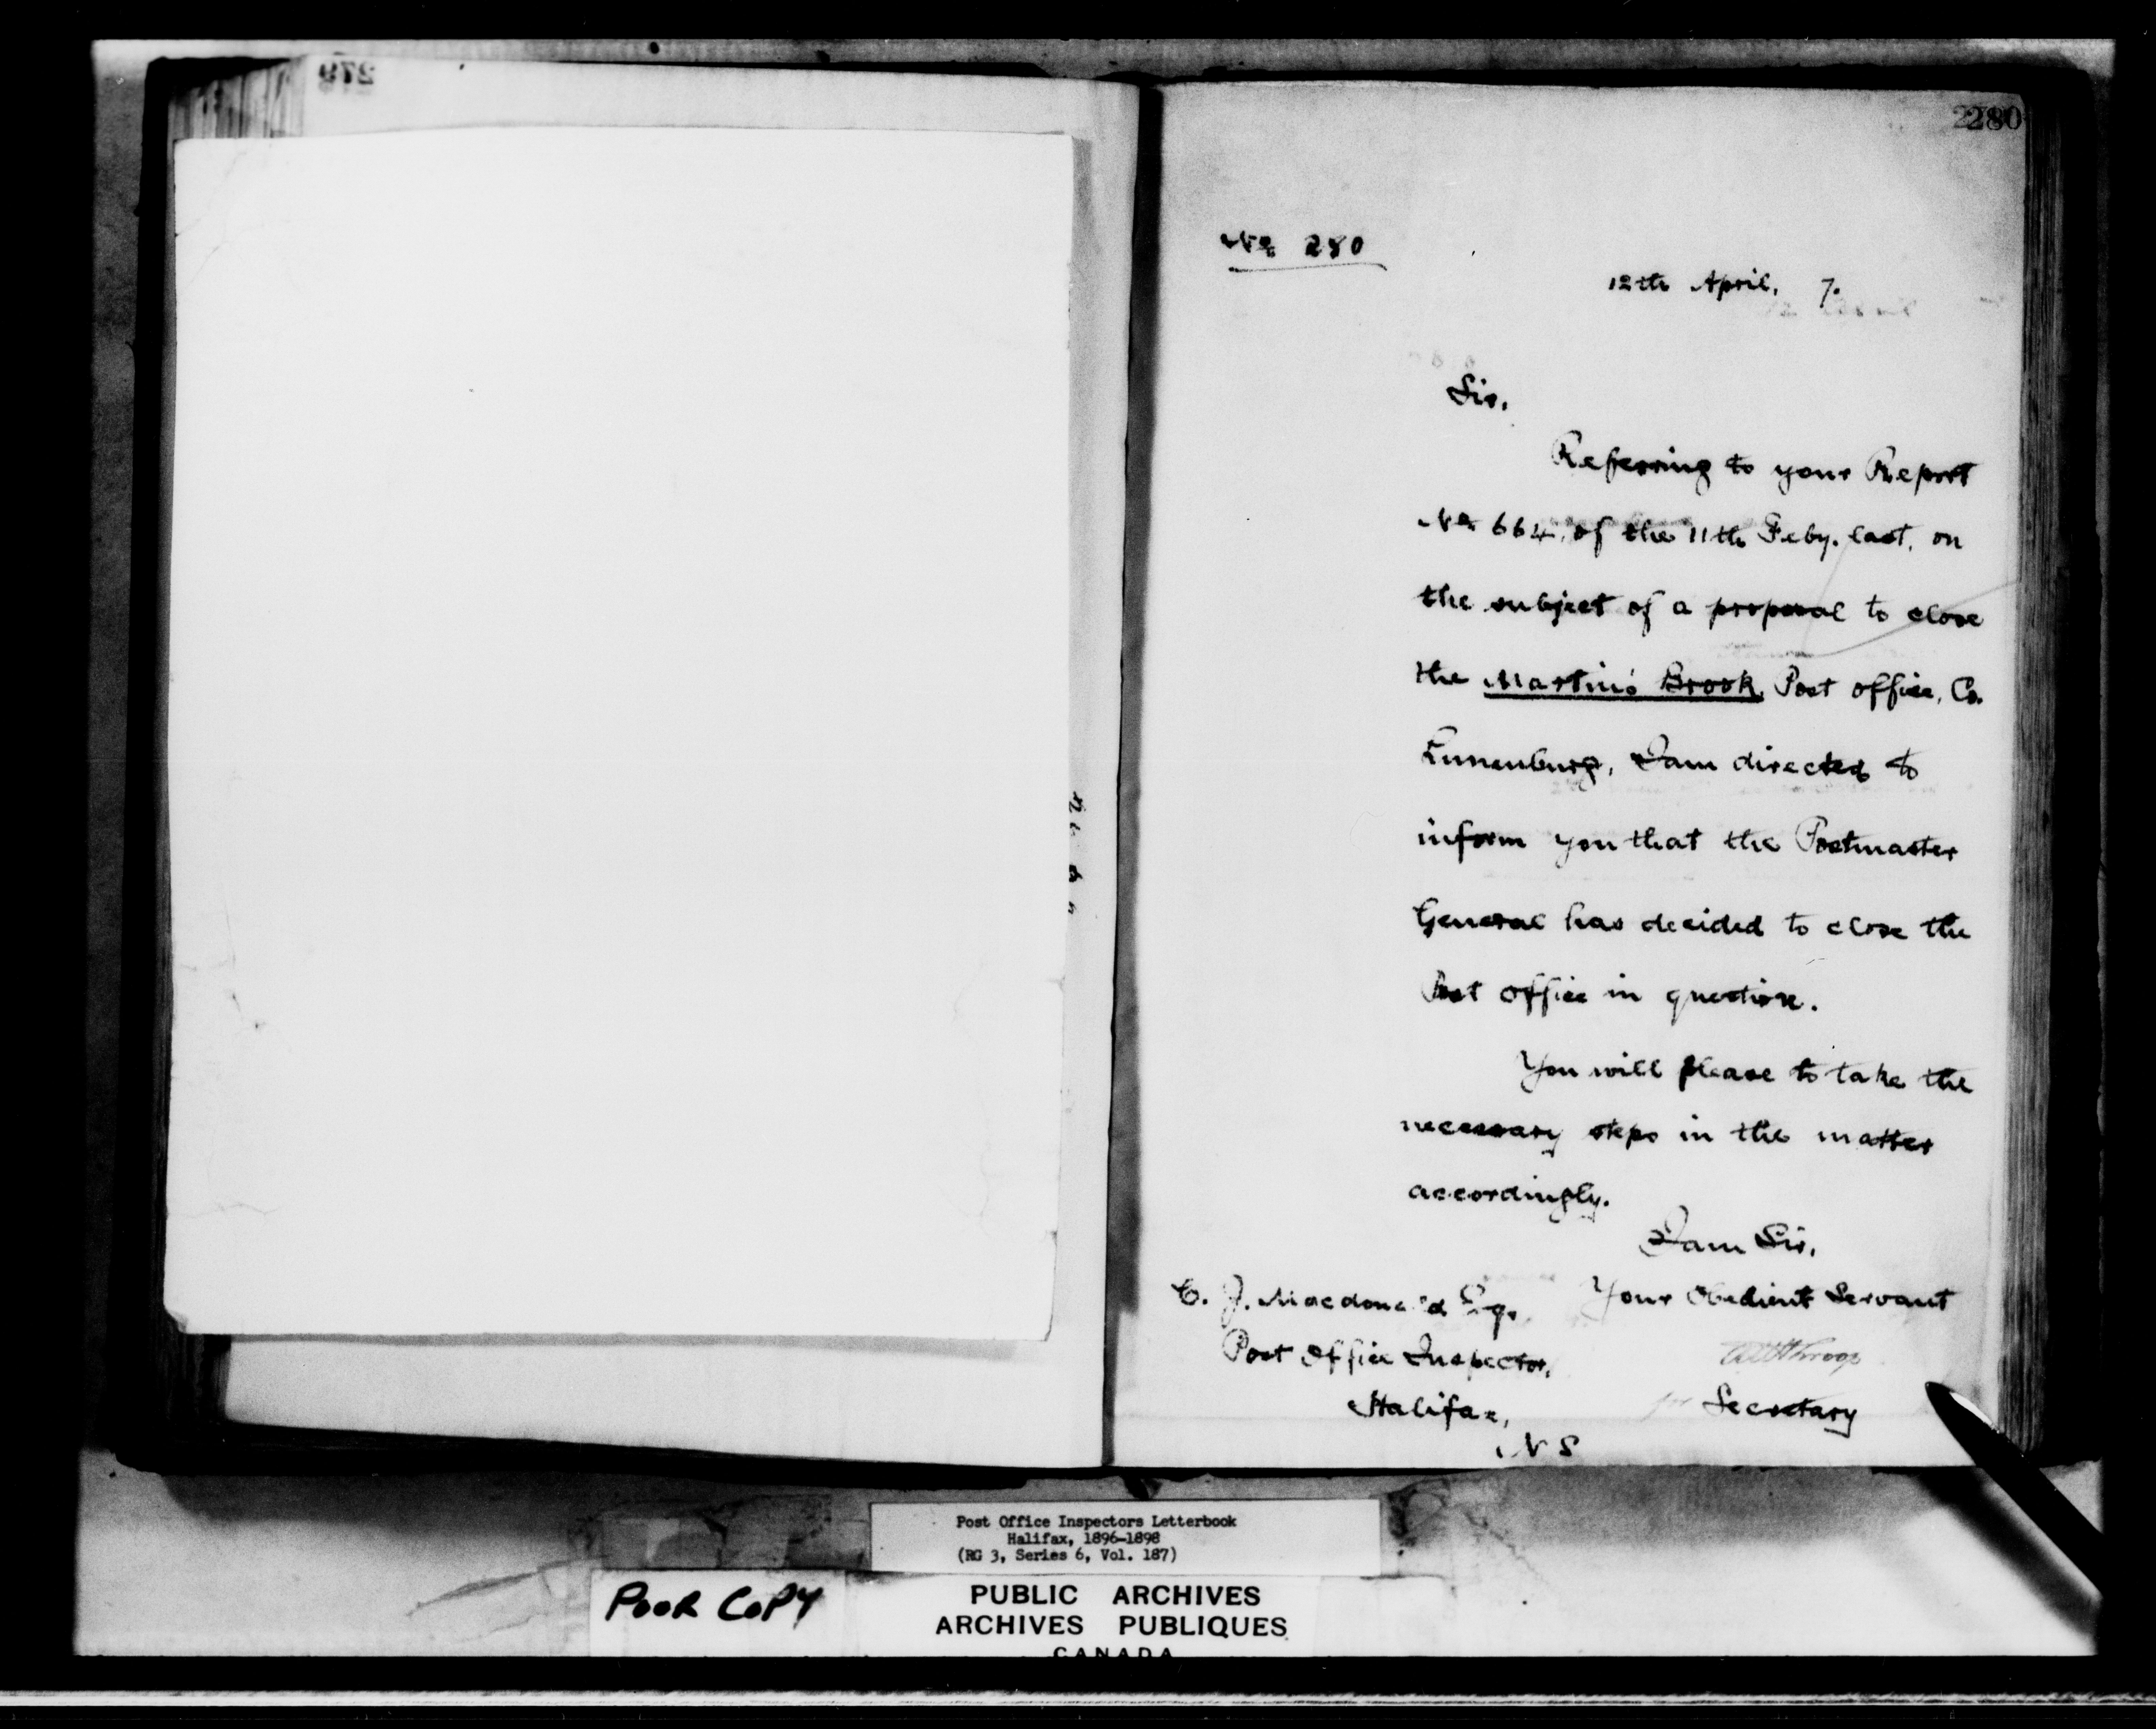 280
No 280
12th April, 7.
Sir,
Referring to your Report
No 664, of the 11th Feby. last, on
the subject of a proposal to close
the Martin's Brook Post office, Co.
Lunenburg, I am directed to
inform you that the Postmaster
General has decided to close the
Post office in question.
You will please to take the
necessary steps in the matter
accordingly.
I am Sir,
Your Obedient Servant
for Secretary
C. J. Macdonald Esq.,
Post Office Inspector,
Halifax,
N S
Post Office Inspectors Letterbook
Halifax, 1896-1898
(RG 3, Series 6, Vol. 187)
POOR COPY
PUBLIC ARCHIVES
ARCHIVES PUBLIQUES
CANADA